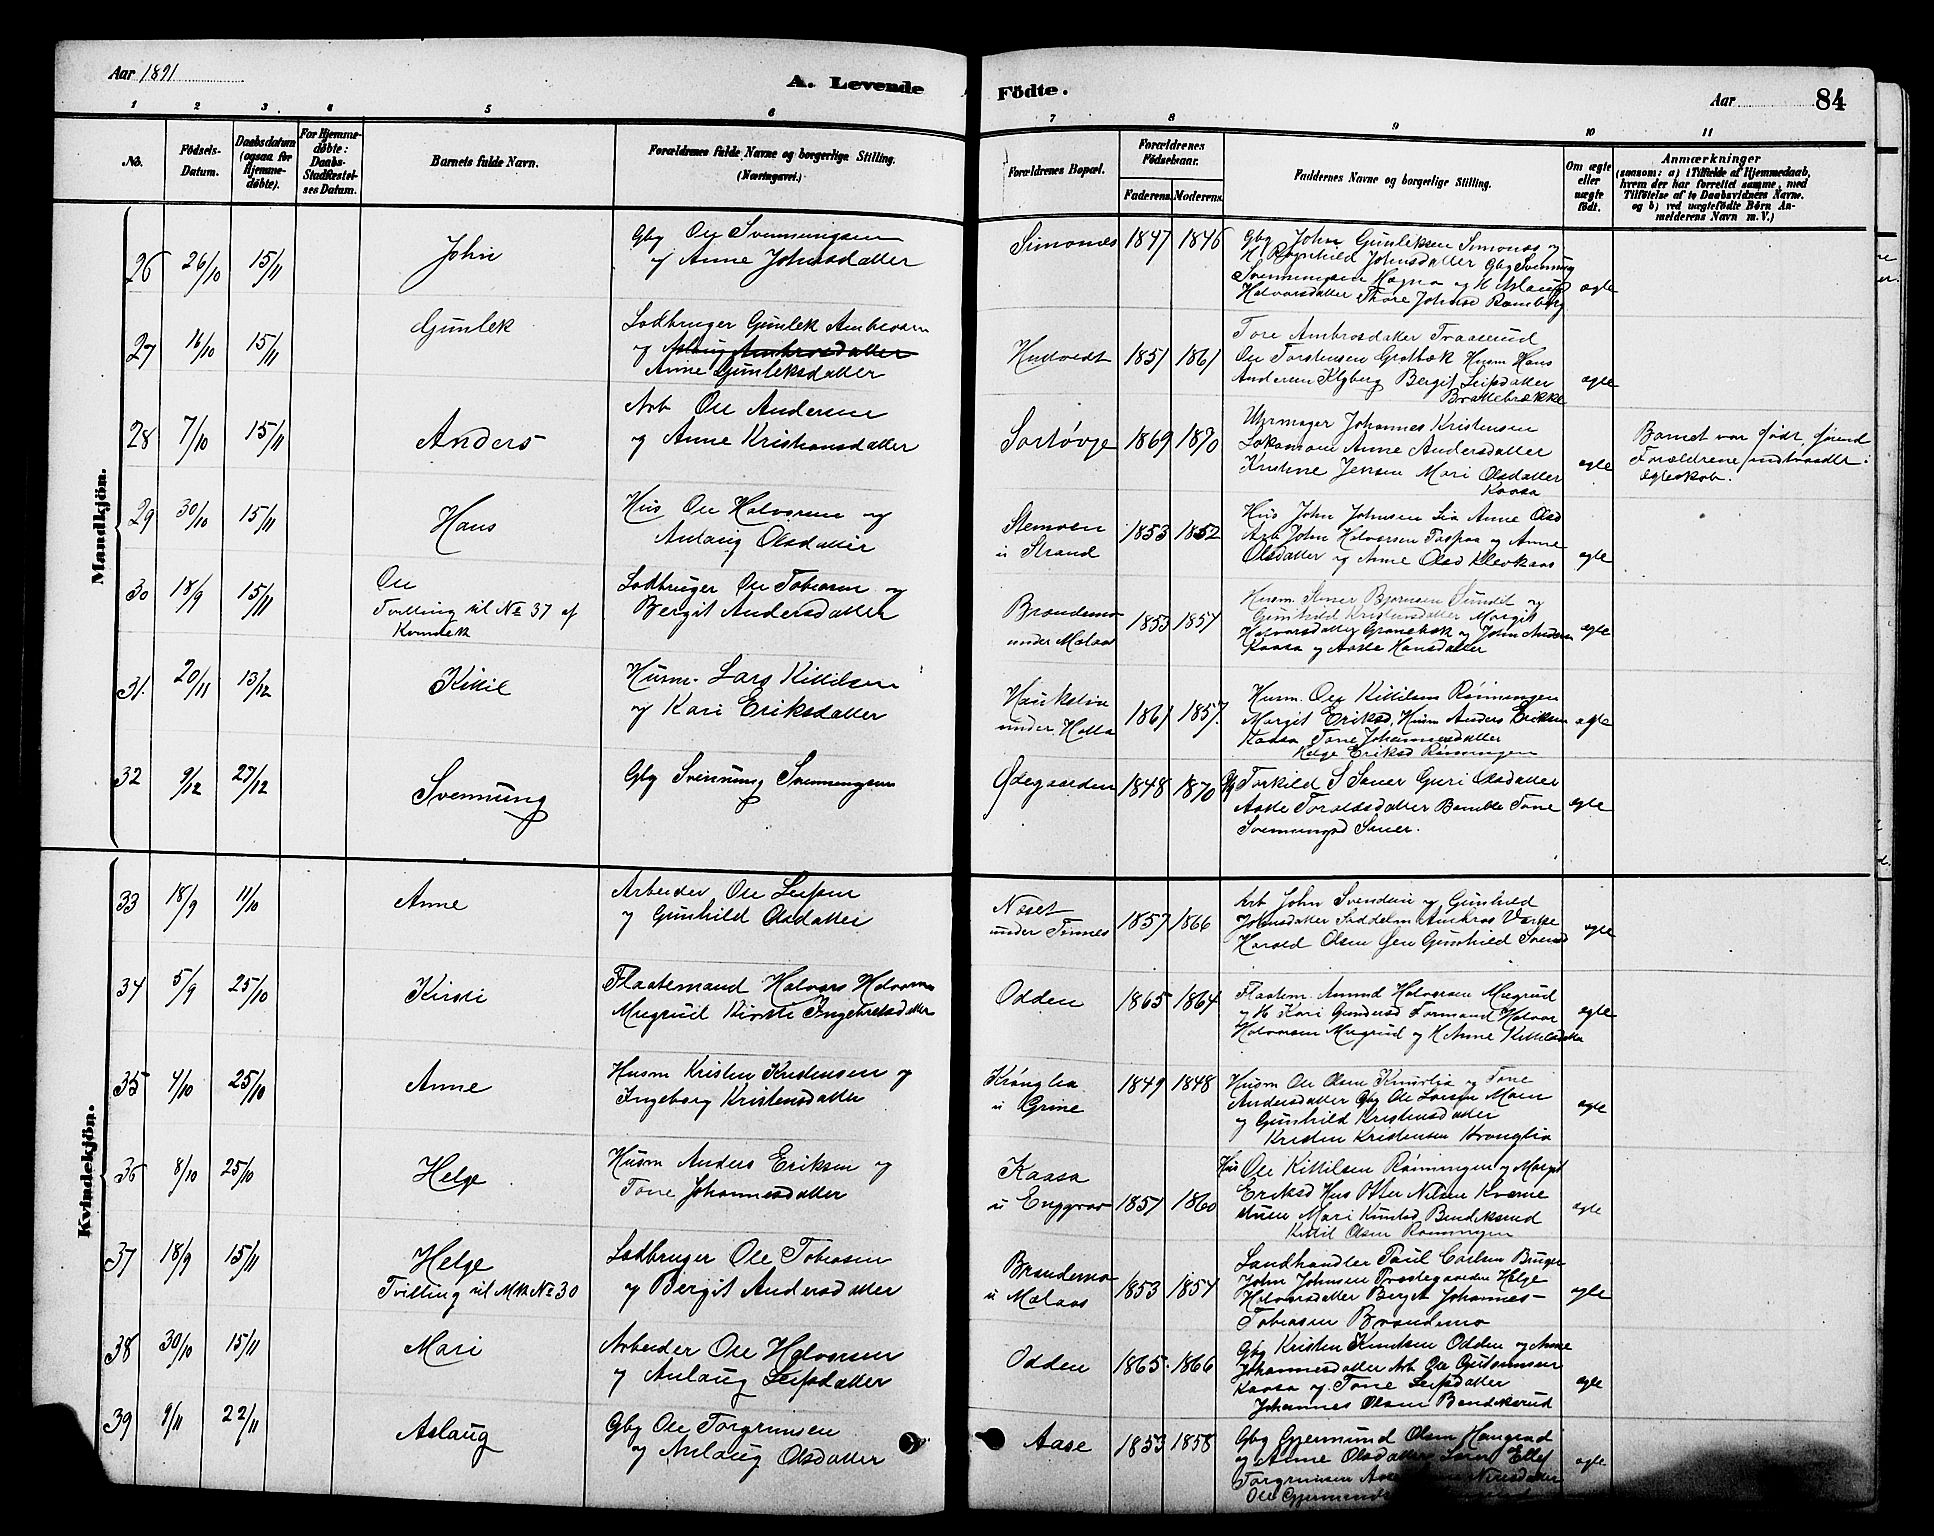 Aar 1891
A. Levende Födte.
Aar 84
1 2 3. 4 5 6 7 8 9 10 11
No.
Födsels-
Datum.
Daabsdatum
(ogsaa for
Hjemme-
döbte).
For Hjemme-
döbte:
Daabs-
Stadfæstel-
ses Datum.
Barnets fulde Navn.
Forældrenes fulde Navne og borgerlige Stilling.
(Næringsvei.)
Forældrenes Bopæl.
Forældrenes
Födselsaar.
Faderens. Moderens.
Faddernes Navne og borgerlige Stilling.
Om ægte
eller
uægte
födt.
Anmærkninger
(saasom: a) i Tilfælde af Hjemmedaab,
hvem der har forrettet samme, med
Tilföielse af to Daabsvidners Navne.
og b) ved uægtefödte Börn An-
melderens Navn m. V.)
Mandkjön.
26 26/10 15/11 John
Gbg Ole Svennungsen
og Anne Johnsdatter
Simones 1847 1846
Gbg John Gunleksen Simonæs og
H. Ragnhild Johnsdatter Gbg Svennung
Svennungsen Hagna og H Aslaug
Halvorsdatter Thore Johnsd Ramberg
ægte
27 16/10 15/11 Gunlek
Lodbruger Gunlek Ambrosen
og Aslaug Ambrosdatter
Anne Gunleksdatter
Hudvedt 1851 1861
Tore Ambrosdatter Traaserud
Ole Torstensen Grotbæk Husm Hans
Andersen Klyberg Bergit Leifsdatter
Brattebrække
ægte
28 7/10 15/11 Anders
Arb Ole Andersen
og Anne Kristiansdatter
Sortøvje 1869 1870
Uhrmager Johannes Kristensen
Anne Andersdatter
Kristine Jensen Mari Olsdatter
Kaasa
ægte
Barnet var födt, førend
Forældrene indtraadte i
Egteskab.
29 30/10 15/11 Hans
Hus Ole Halvorsen og
Anlaug Olsdatter
Stemoen
u Strand
1853 1852
Hus John Johnsen Lia Anne Olsd
Arb John Halvorsen og Anne
Olsdatter og Anne Olsd Klevkaas
ægte
30 18/9 15/11 Ole
Tvilling til No 37 af
Kvindek
Lodbruger Ole Tobiasen og
Bergit Andersdatter
Brondemo
under Melaas
1853 1854
Husm. Bjørnsen Sundet og
Gunhild Kristensdatter Margit
Halvorsdatter Granebæk og John Andersen
Kaasa og Aaste Hansdatter
ægte
31. 20/11 13/12 Kittil
Husm. Lars Kittilsen
og Kari Eriksdatter
Haukelia
under Holta
1861 1857.
Husm. Ole Kittilsen Rönningen
Margit Eriksd. Husm Anders Eriksen
Kaasa Tone Johannesdatter
Helge Eriksd Rönningen
ægte
32 9/12 27/12 Svennung
Gbg Svennung Svennungsen
Ødegaarden 1848 1870
Gbg Torkild S Sauer Guri Olsdatter
Aaste Toraldsdatter Bamble Tone
Svennungsd Sauer.
ægte
Kvindekjön.
33 18/9 11/10 Anne
Arbeider Ole Leifsen
og Gunhild Olsdatter
Næset
under Tinnes
1857 1866
Arb John Svendsen og Gunhild
Johnsdatter Saddelm Ambros Værke
Harald Olsen Øen Gunhild Svensd
ægte
34 5/9 25/10 Kirsti
Flaatemand Halvors Halvorsen
Mugrud Kirsti Ingebretsdatter
Odden 1865 1864
Flaatem. Amund Halvorsen Mugrud
og H Kari Gundersd Formand Halvor
Halvorsen Mugrud og H Anne Kittilsdatter
ægte
35 4/10 25/10 Anne
Husm Kristen Kristensen og
Ingeborg Kristensdatter
Krönglia
u Grine
1849 1848
Husm Ole Olsen Knurlia og Tone
Andersdatter Gbg Ole Larsen Moen
og Gunhild Kristensdatter
Kristen Kristensen Kronglia
ægte
36 8/10 25/10 Helge
Husm Anders Eriksen og
Tone Johannesdatter
Kaasa
u Enggrav
1857 1860
Hus Ole Kittilsen Rönningen og Margit
Eriksd Hus Otter Nilsen Kverne
stuen Mari Knutsd Bendiksrud
Kittil Olsen Rönningen
ægte
37 18/9 15/11 Helge
Tvilling til Mk No 30
Lodbruger Ole Tobiasen
og Bergit Andersdatter
Brondemo
u Melaas
1853 1854
Landhandler Paul Carlsen Bruger
John Johnsen Præstegaarden Helge
Halvorsdatter Berget Johannes
Tobiasen Brondemo
ægte
38 30/10 15/11 Mari
Arbeider Ole Halvorsen
og Anlaug Leifsdatter
Odden 1865. 1866
Gbg Kristen Knutsen Odden og Anne
Johannesdatter Arb Ole Guttormsen
Kaasa og Tone Leifsdatter
Johannes Olsen Bendiksrud
ægte
39 9/11 22/11 Aslaug
Gbg Ole Torgrimsen
og Anlaug Olsdatter
Aase 1853 1858
Gbg Gjermund Olsen Haugrud
og Anne Olsdatter Ellef
Torgrimsen Aase Nirisdatter
Ole Gjermunds
ægte